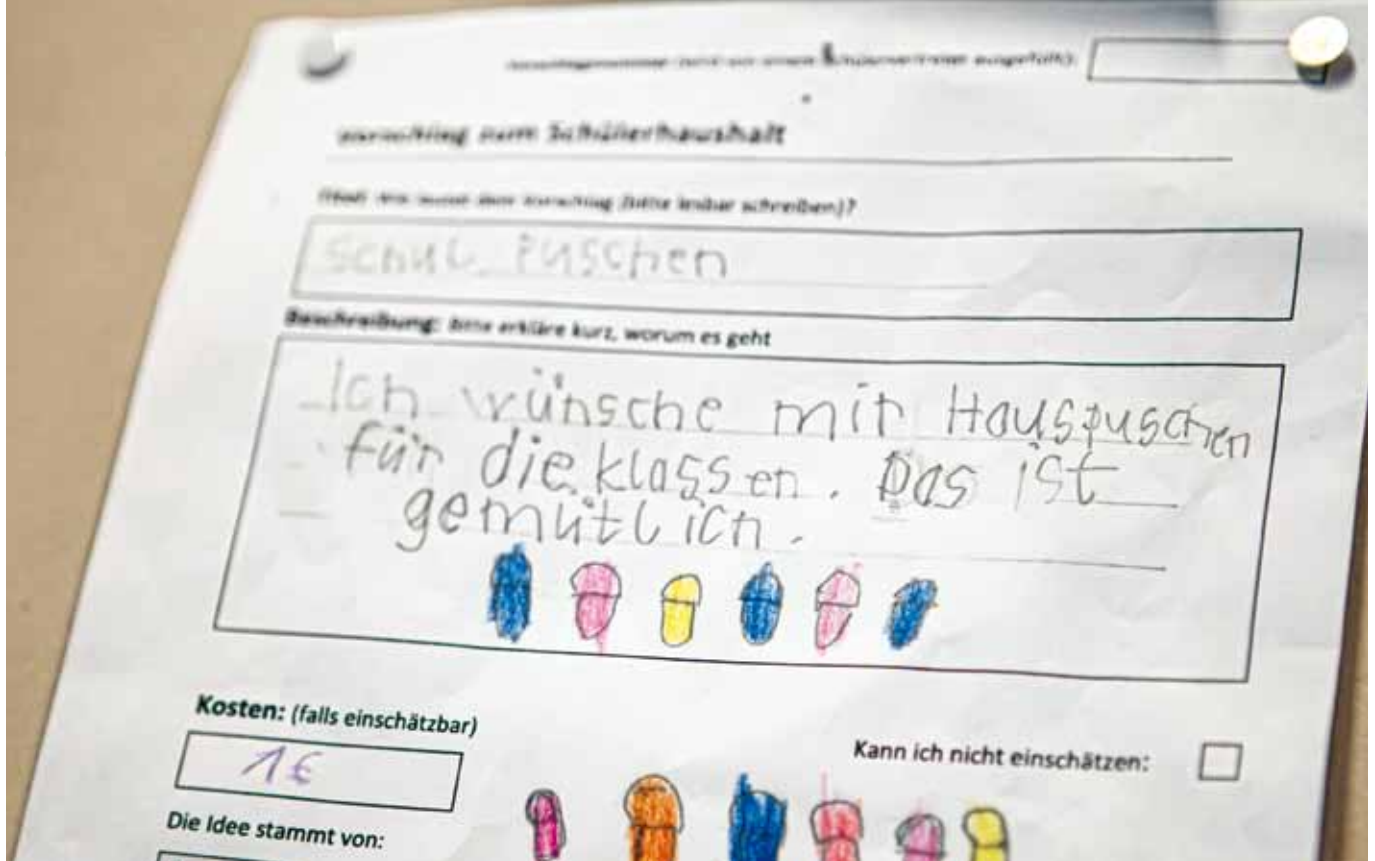 (wird von einem Schülervertreter ausgefüllt):
Vorschlag zum Schülerhaushalt
Vorschlag (bitte lesbar schreiben)?
schul Puschen
Beschreibung: Bitte erkläre kurz, worum es geht
Ich wünsche mir Hauspuschen
für die klassen. Das ist
gemütlich.
Kosten: (falls einschätzbar)
Kann ich nicht einschätzen:
1€
Die Idee stammt von: